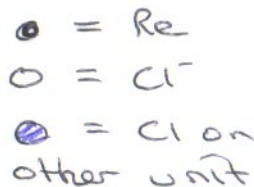 = Re
= Cl⁻
= Cl on
other unit